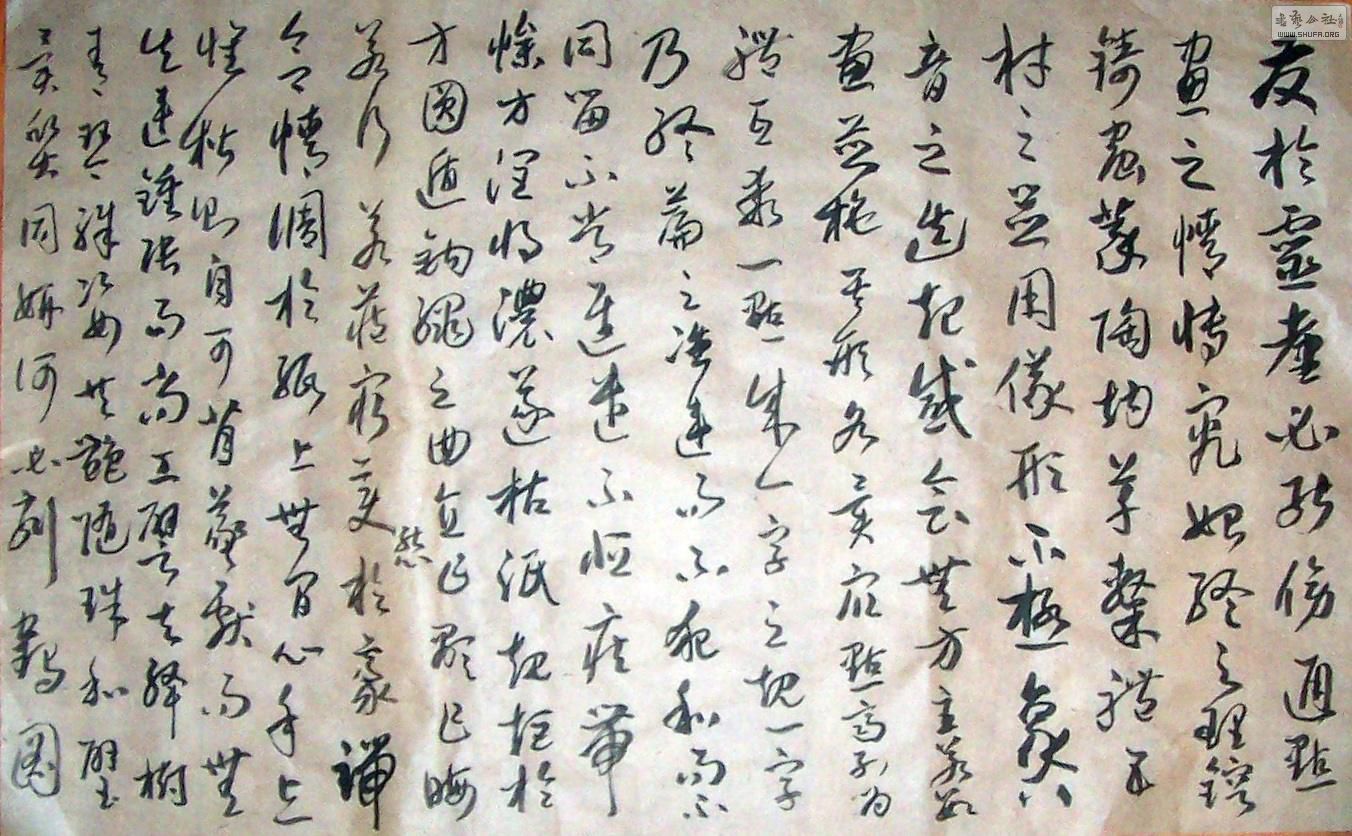 於靈臺必能傍通點
畫之情博究始終之理鎔
鑄蟲篆陶均草隸體五
材之並用儀形不極象八
音之迭起感會無方至若數
畫並施其形各異眾點齊列為
體互乖一點成一字之規一字
乃終篇之準違而不犯和而不
同留不常遲遣不恒疾帶
燥方潤將濃遂枯泯規矩於
方圓遁鉤繩之曲直乍顯乍晦
若行若藏窮變態於豪端
合情調於紙上無間心手忘
懷楷則自可背羲獻而無
失違鍾張而尚工譬夫絳樹
青琴殊姿共艷隨珠和璧
異質同妍何必刻鶴圖
書藝公社
WWW.SHUFA.ORG